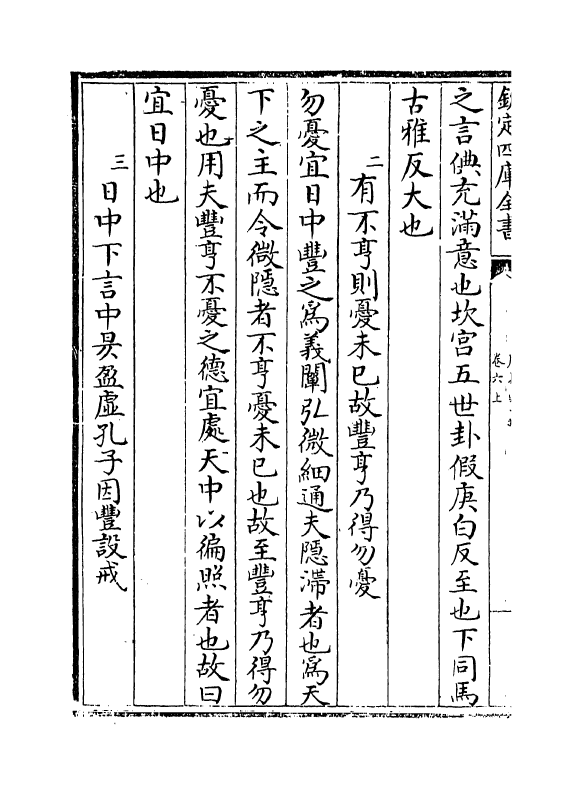 欽定四庫全書
卷六上
之言倎充滿意也坎宮五世卦假庚白反至也下同馬
古雅反大也
二有不亨則憂未已故豐亨乃得勿憂
勿憂宜日中豐之爲義闡弘微細通夫隱滯者也爲天
下之主而令微隱者不亨憂未已也故至豐亨乃得勿
憂也用夫豐亨不憂之德宜處天中以徧照者也故曰
宜日中也
三日中下言中昃盈虛孔子因豐設戒